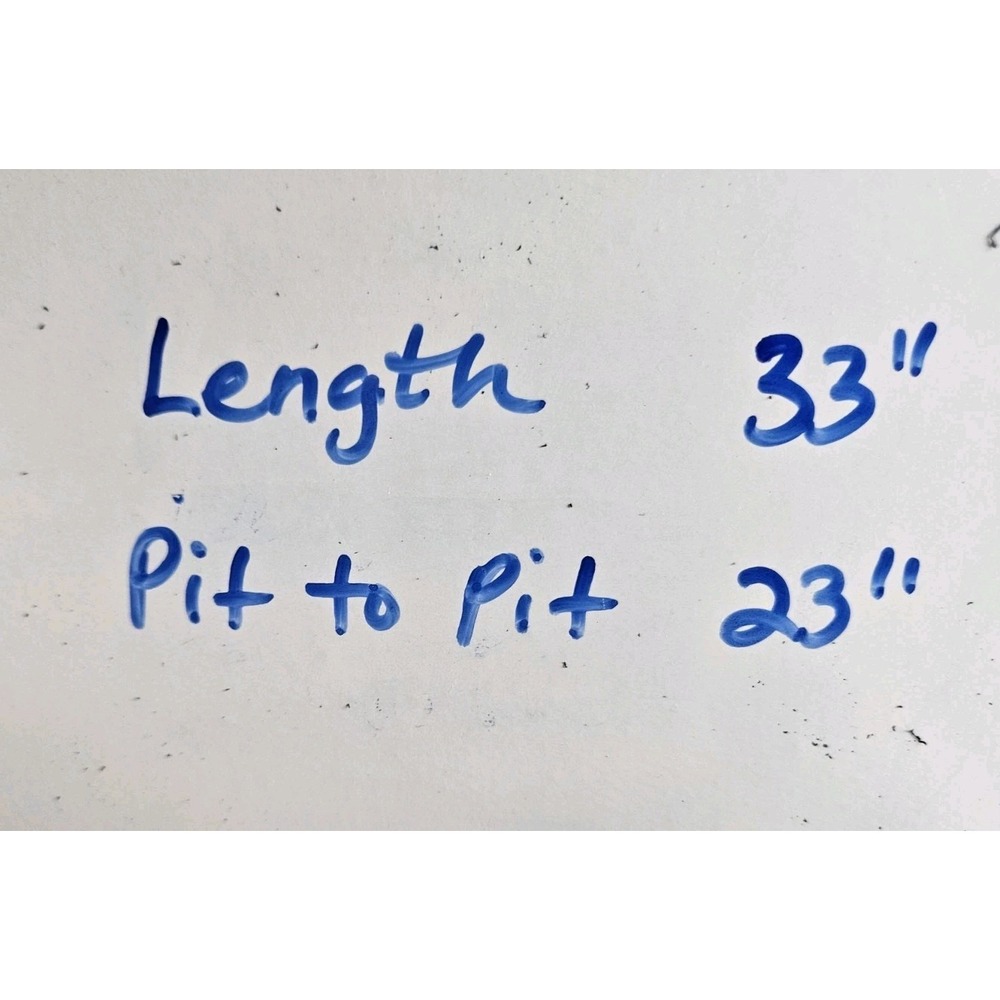 Length 33"
Pit to Pit 23"